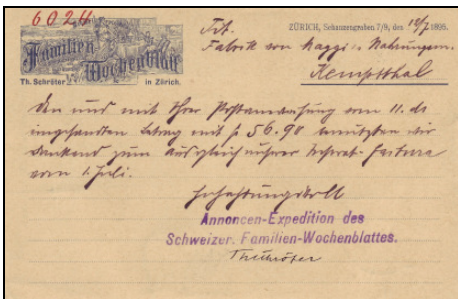 6024
Familien
Wochenblatt
Th. Schröter in Zürich.
ZÜRICH, Schanzengraben 7/9, den 12/7 1895.
Tit.
Fabrik von Maggi's Nahrungsm.
Kemptthal
Den uns mit Ihrer Postanweisung vom 11. ds
eingesandten Betrag mit f 56.90 benützten wir
dankend zum Ausgleich unserer Inserat-Factura
vom 1. Juli.
Hochachtungsvoll
Annoncen-Expedition des
Schweizer. Familien-Wochenblattes.
Th. Schröter